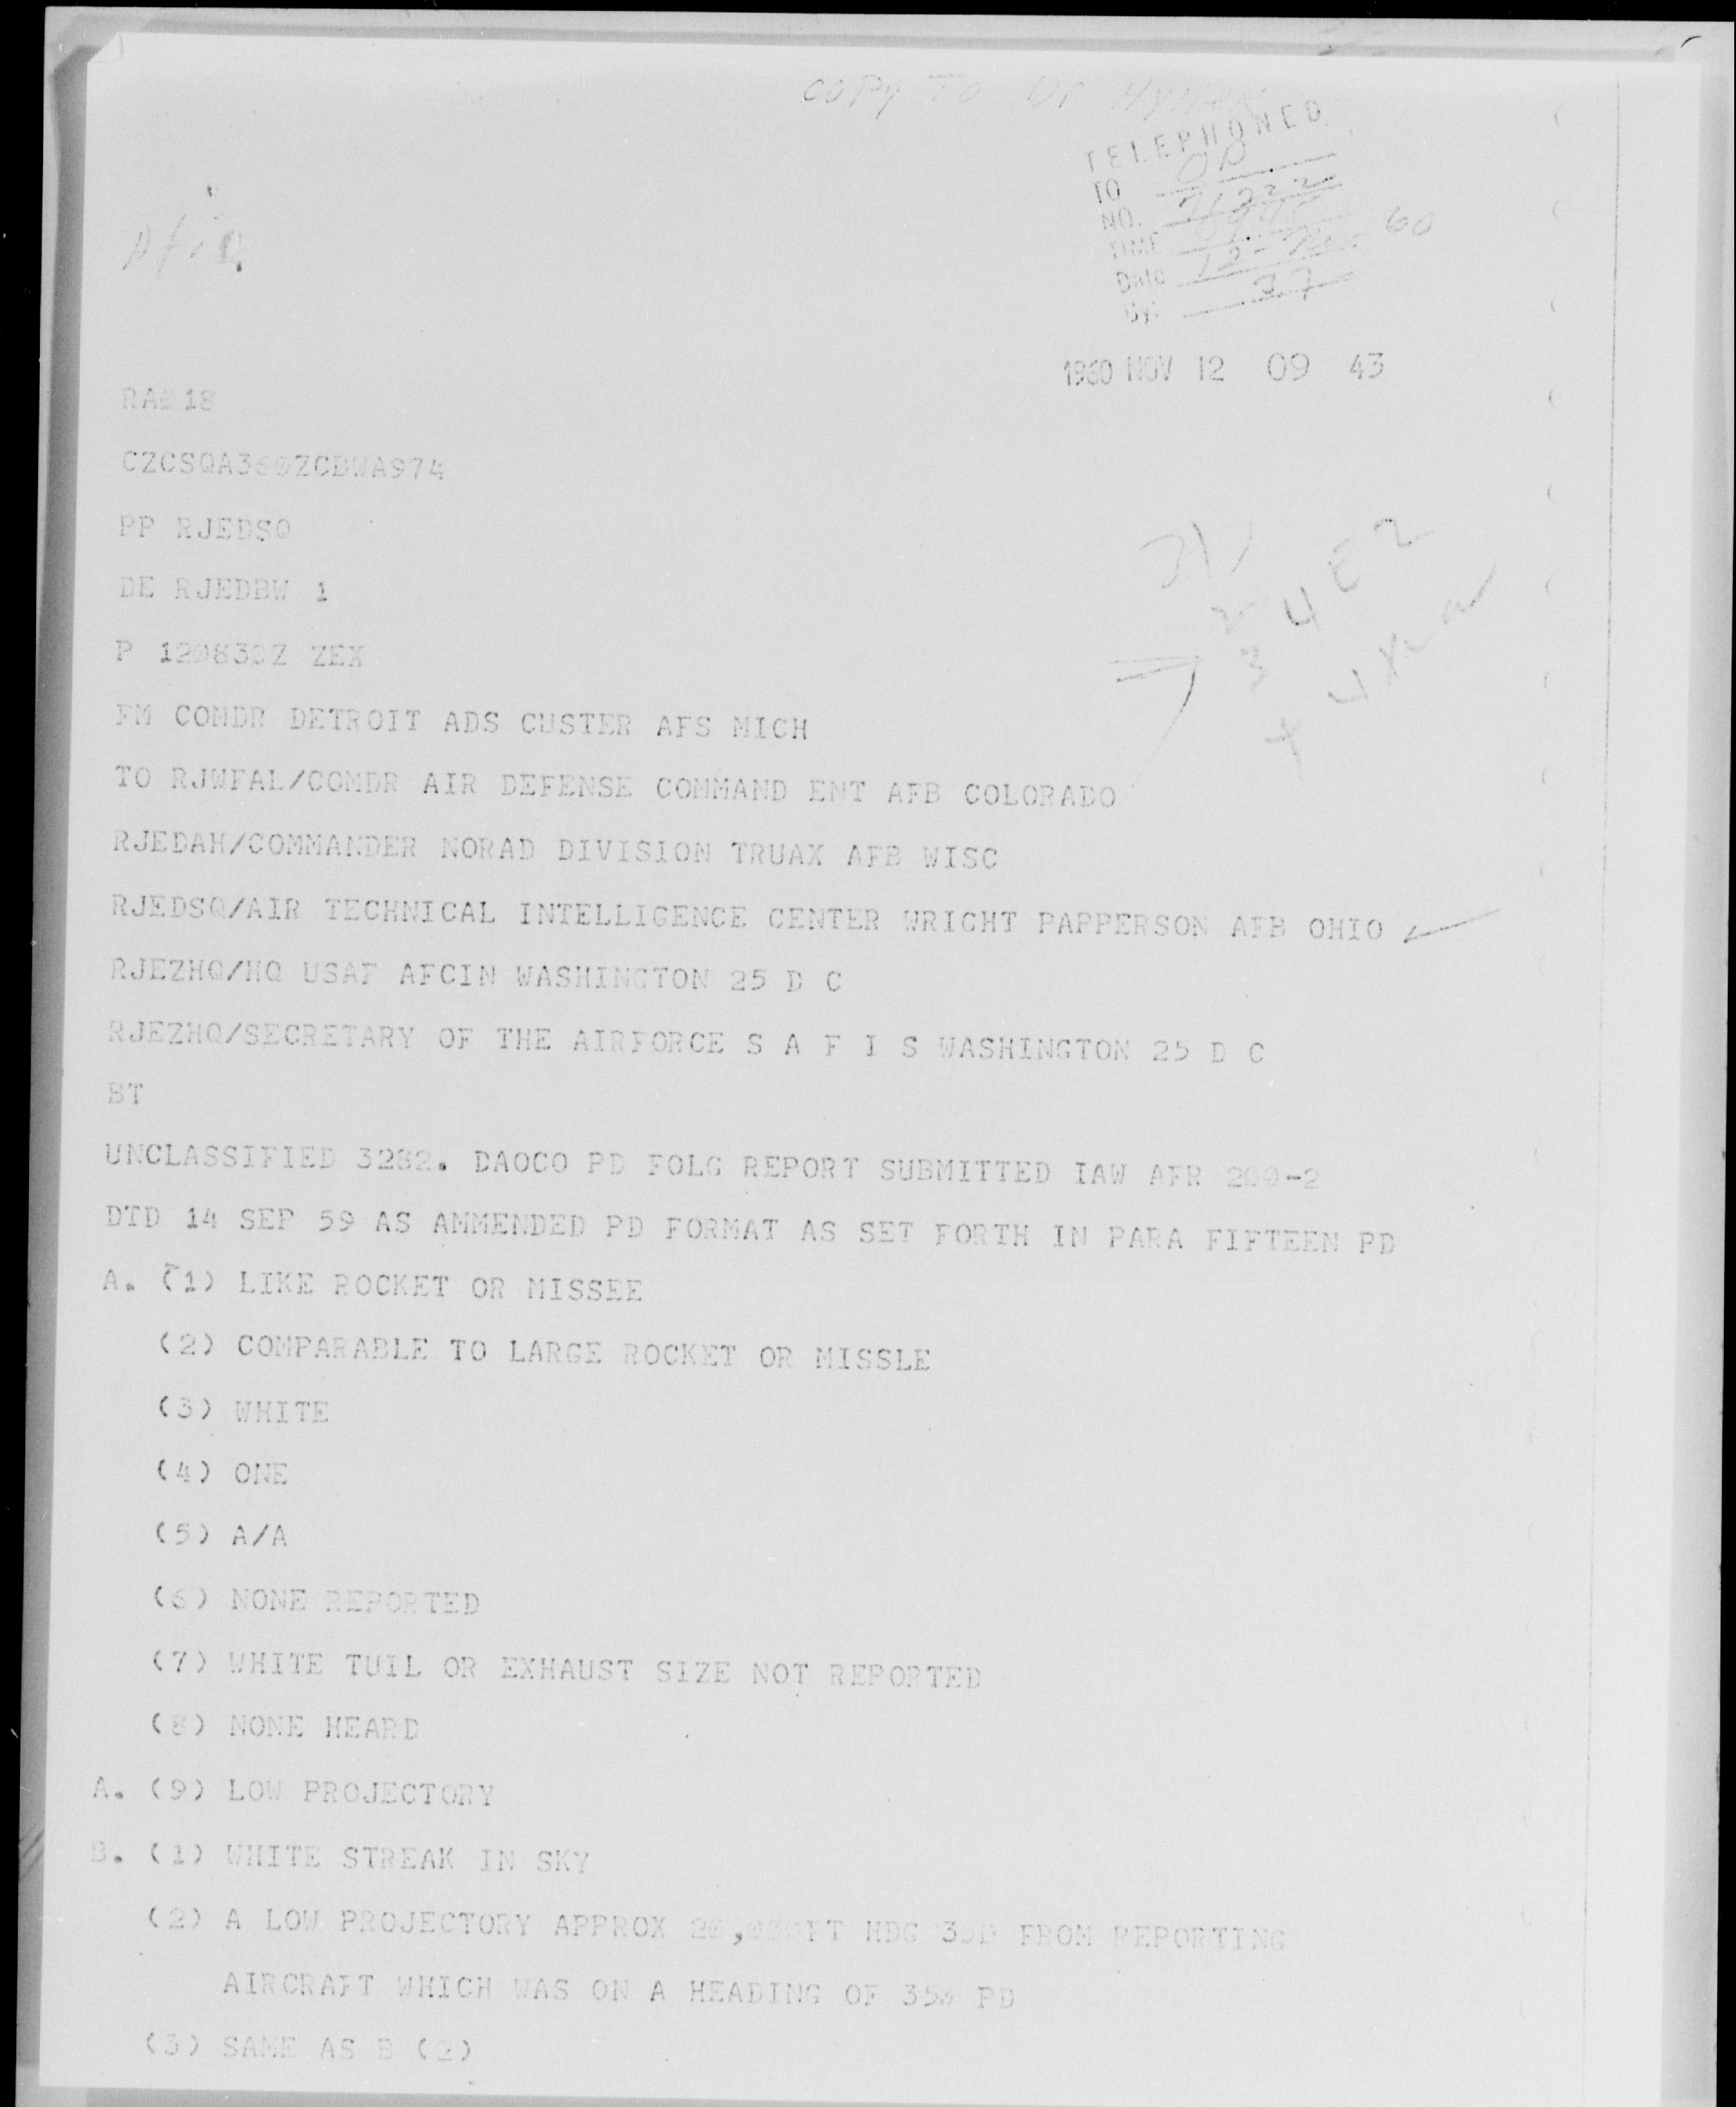 COPY TO Dr HYNEK
TELEPHONED
TO OD
NO. 71222
TIME
Date 12-Nov 60
By: 37
1960 NOV 12 09 43
RA018
CZCSQA360ZCDWA974
PP RJEDSQ
DE RJEDBW 1
P 120830Z ZEX
FM COMDR DETROIT ADS CUSTER AFS MICH
TO RJWFAL/COMDR AIR DEFENSE COMMAND ENT AFB COLORADO
RJEDAH/COMMANDER NORAD DIVISION TRUAX AFB WISC
RJEDSQ/AIR TECHNICAL INTELLIGENCE CENTER WRIGHT PAPPERSON AFB OHIO
RJEZHQ/HQ USAF AFCIN WASHINGTON 25 D C
RJEZHQ/SECRETARY OF THE AIRFORCE S A F I S WASHINGTON 25 D C
BT
UNCLASSIFIED 3282. DAOCO PD FOLG REPORT SUBMITTED IAW AFR 200-2
DTD 14 SEP 59 AS AMMENDED PD FORMAT AS SET FORTH IN PARA FIFTEEN PD
A. (1) LIKE ROCKET OR MISSEE
(2) COMPARABLE TO LARGE ROCKET OR MISSLE
(3) WHITE
(4) ONE
(5) A/A
(6) NONE REPORTED
(7) WHITE TUIL OR EXHAUST SIZE NOT REPORTED
(8) NONE HEARD
A. (9) LOW PROJECTORY
B. (1) WHITE STREAK IN SKY
(2) A LOW PROJECTORY APPROX 20,000FT HDG FROM REPORTING
AIRCRAFT WHICH WAS ON A HEADING OF 350 PD
(3) SAME AS B (2)